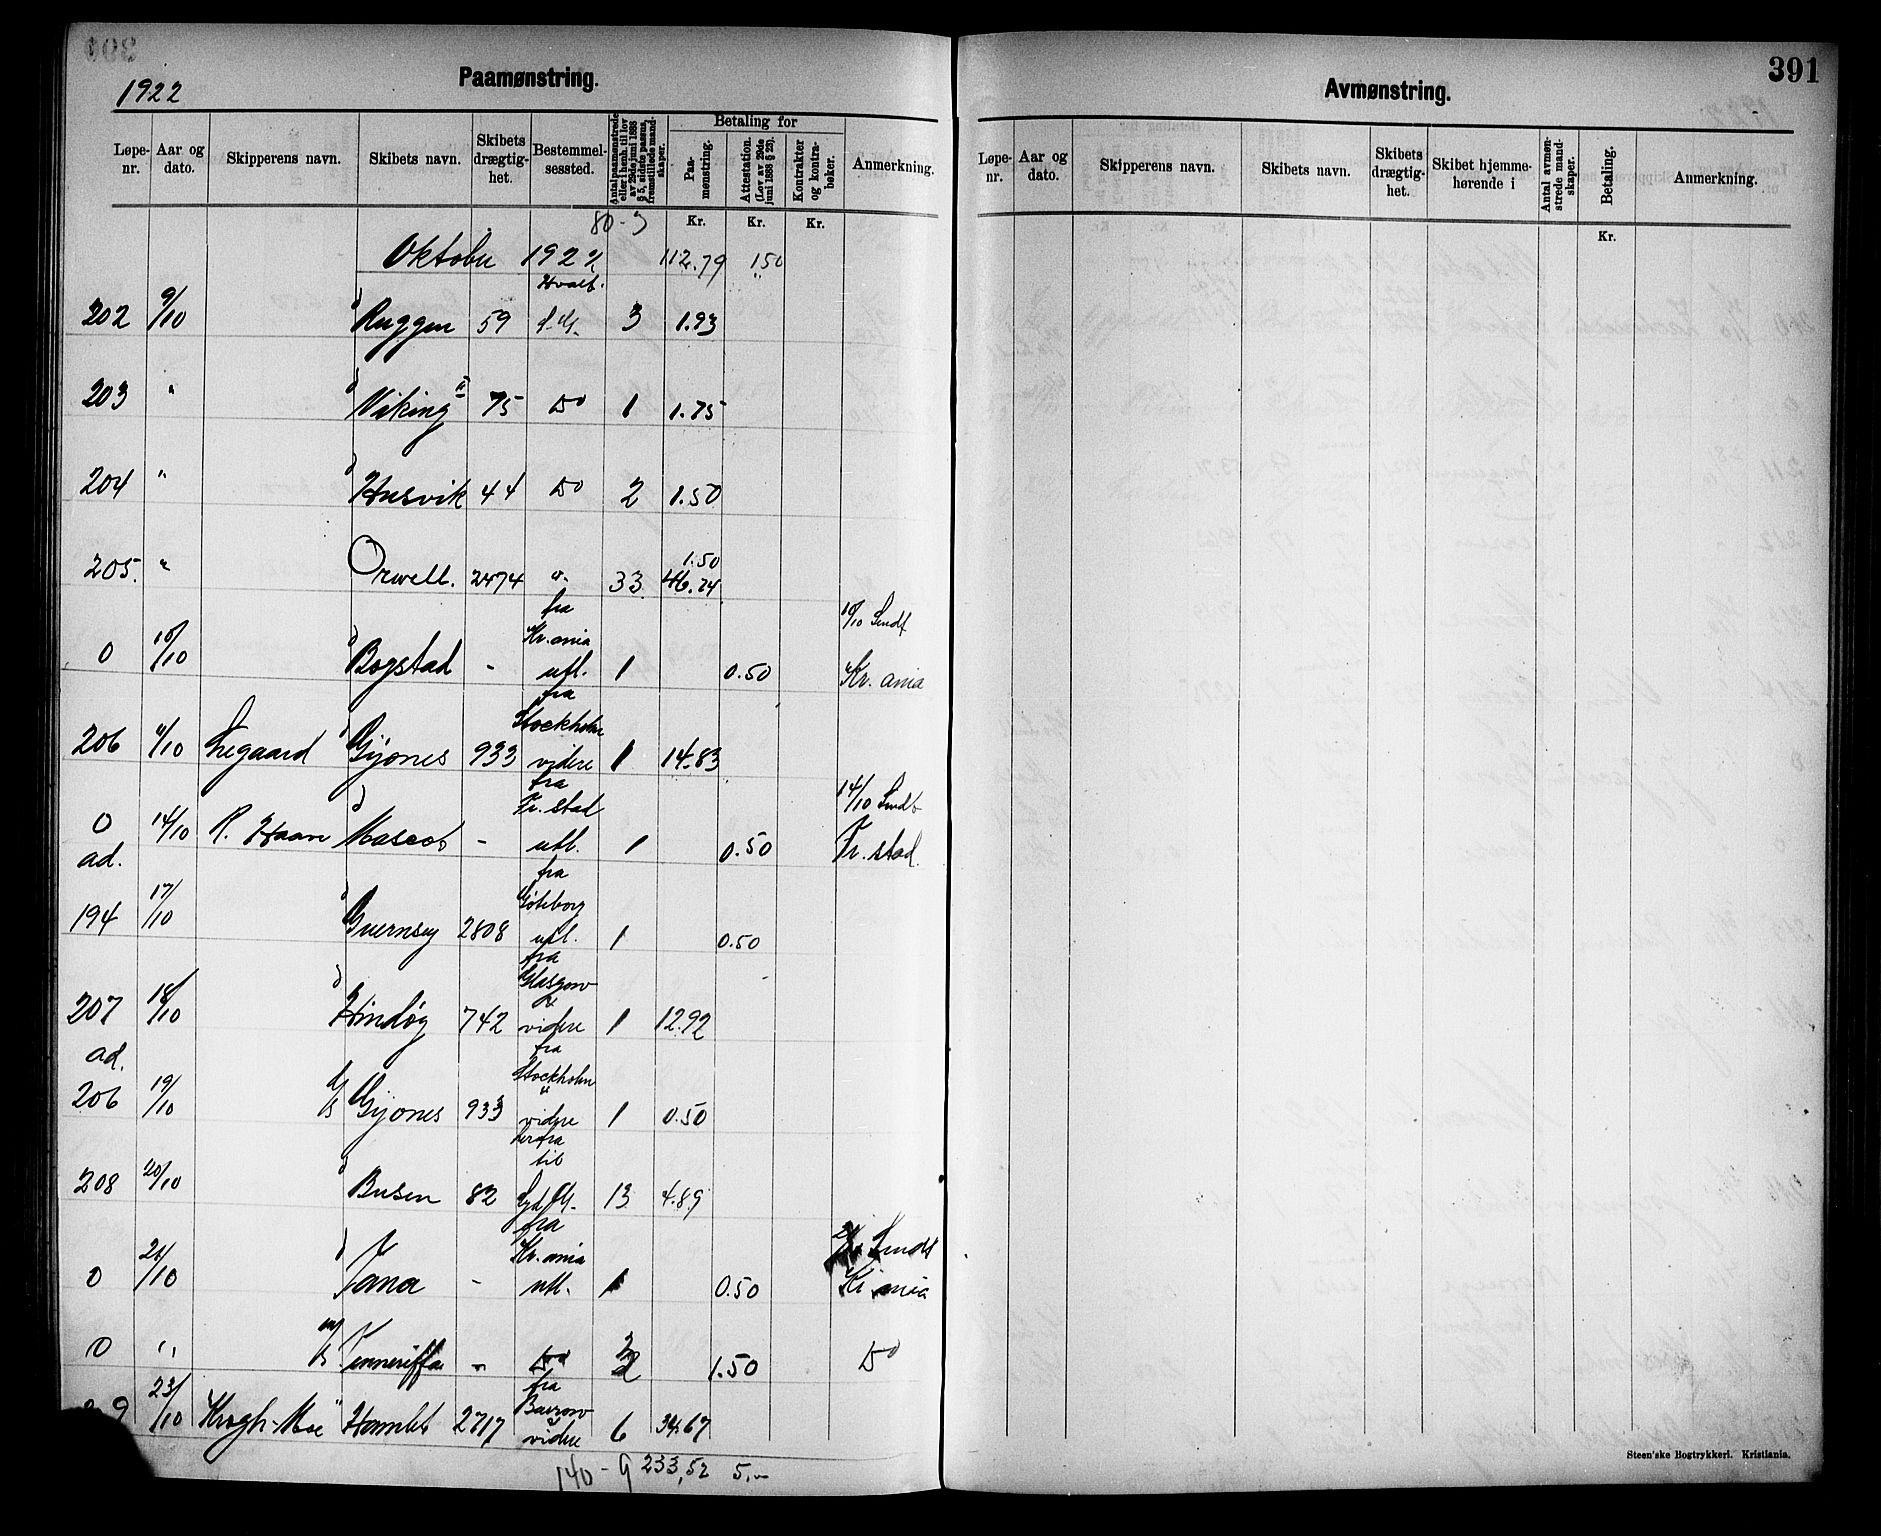 1922
Paamønstring.
Løpenr. Aar og dato. Skipperens navn. Skibets navn. Skibets drægtighet. Bestemmelsessted. Antal paamønstrede eller i henh. til lov av 29de juni 1888 § 5, sidste passus, fremstillede mandskaper. Betaling for Paamønstring. Attestation. (Lov av 29de juni 1888 § 25). Kontrakter og kontrabøker. Anmerkning.
80 - 3 Kr. Kr. Kr.
Oktober 1922 112.79 1.50
Hvalf.
202 9/10 Ruggen 59 3 1.93
203 " Viking II 75 Do 1 1.75
204 " Husvik 44 Do 2 1.50
1.50
205. " Orwell. 2474 " 33 46.74
fra
Kr.ania 10/10 Sendt
0 10/10 Bogstad - utl. 1 0.50 Kr.ania
fra
Stockholm
206 11/10 Gijones 933 videre 1 14.83
fra
Fr.stad 14/10 Sendt
0 14/10 R. Haave Mascot - utl. 1 0.50 Fr.stad.
ad. fra
Göteborg
194 17/10 Guernsey 2808 utl. 1 0.50
fra
Glasgow
207 18/10 Hindøy 742 videre 1 12.92
ad. fra
Stockholm
206 19/10 Gijones 933 videre 1 0.50
herfra
til
208 20/10 Busen 82 13 4.89
fra
Kr.ania Sendt
0 21/10 Jana - utl. 1 0.50 Kr.ania
0 " m/s Tenneriffa - Do 1.50 Do
fra
Barrow
9 23/10 Krogh-Moe Hamlet 2717 videre 6 34.67
140 - 9 233,52 5.-
391
Avmønstring.
Løpenr. Aar og dato. Skipperens navn. Skibets navn. Skibets drægtighet. Skibet hjemmehørende i Antal avmønstrede mandskaper. Betaling. Anmerkning.
Kr.
Steen'ske Bogtrykkeri. Kristiania.